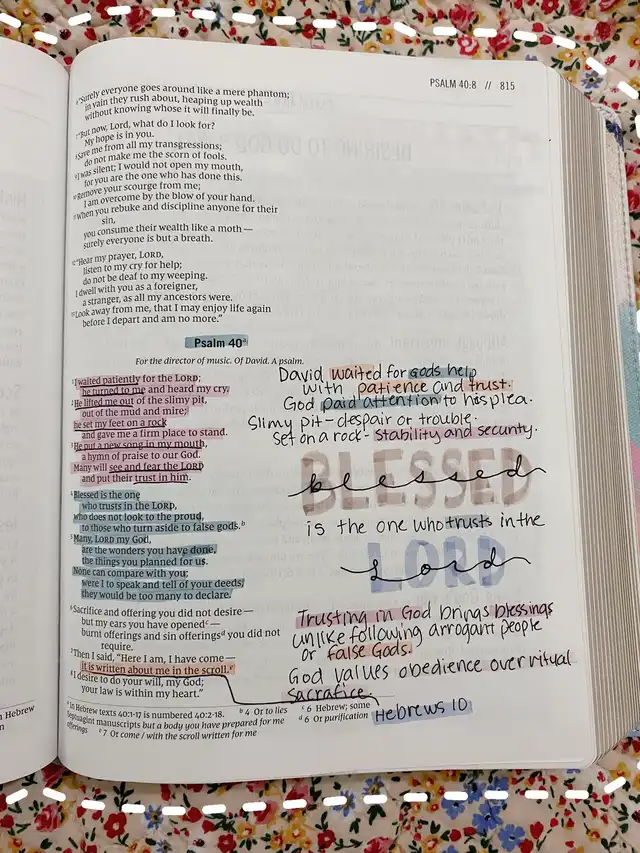 PSALM 40:8 // 815
6 "Surely everyone goes around like a mere phantom;
in vain they rush about, heaping up wealth
without knowing whose it will finally be.
7 "But now, Lord, what do I look for?
My hope is in you.
8 Save me from all my transgressions;
do not make me the scorn of fools.
9 I was silent; I would not open my mouth,
for you are the one who has done this.
10 Remove your scourge from me;
I am overcome by the blow of your hand.
11 When you rebuke and discipline anyone for their
sin,
you consume their wealth like a moth —
surely everyone is but a breath.
12 "Hear my prayer, LORD,
listen to my cry for help;
do not be deaf to my weeping.
I dwell with you as a foreigner,
a stranger, as all my ancestors were.
13 Look away from me, that I may enjoy life again
before I depart and am no more."
Psalm 40 a
For the director of music. Of David. A psalm.
1 I waited patiently for the LORD;
he turned to me and heard my cry.
2 He lifted me out of the slimy pit,
out of the mud and mire;
he set my feet on a rock
and gave me a firm place to stand.
3 He put a new song in my mouth,
a hymn of praise to our God.
Many will see and fear the LORD
and put their trust in him.
4 Blessed is the one
who trusts in the LORD,
who does not look to the proud,
to those who turn aside to false gods. b
5 Many, LORD my God,
are the wonders you have done,
the things you planned for us.
None can compare with you;
were I to speak and tell of your deeds,
they would be too many to declare.
6 Sacrifice and offering you did not desire —
but my ears you have opened c —
burnt offerings and sin offerings d you did not
require.
7 Then I said, "Here I am, I have come —
it is written about me in the scroll. e
8 I desire to do your will, my God;
your law is within my heart."
a In Hebrew texts 40:1-17 is numbered 40:2-18.
b 4 Or to lies
c 6 Hebrew; some
Septuagint manuscripts but a body you have prepared for me
d 6 Or purification
offerings e 7 Or come / with the scroll written for me
David waited for Gods help
with patience and trust.
God paid attention to his plea.
Slimy pit - despair or trouble.
Set on a rock - stability and security.
BLESSED
blessed
is the one who trusts in the
LORD
Lord
Trusting in God brings blessings
unlike following arrogant people
or false Gods.
God values obedience over ritual
sacrafice.
Hebrews 10
n Hebrew